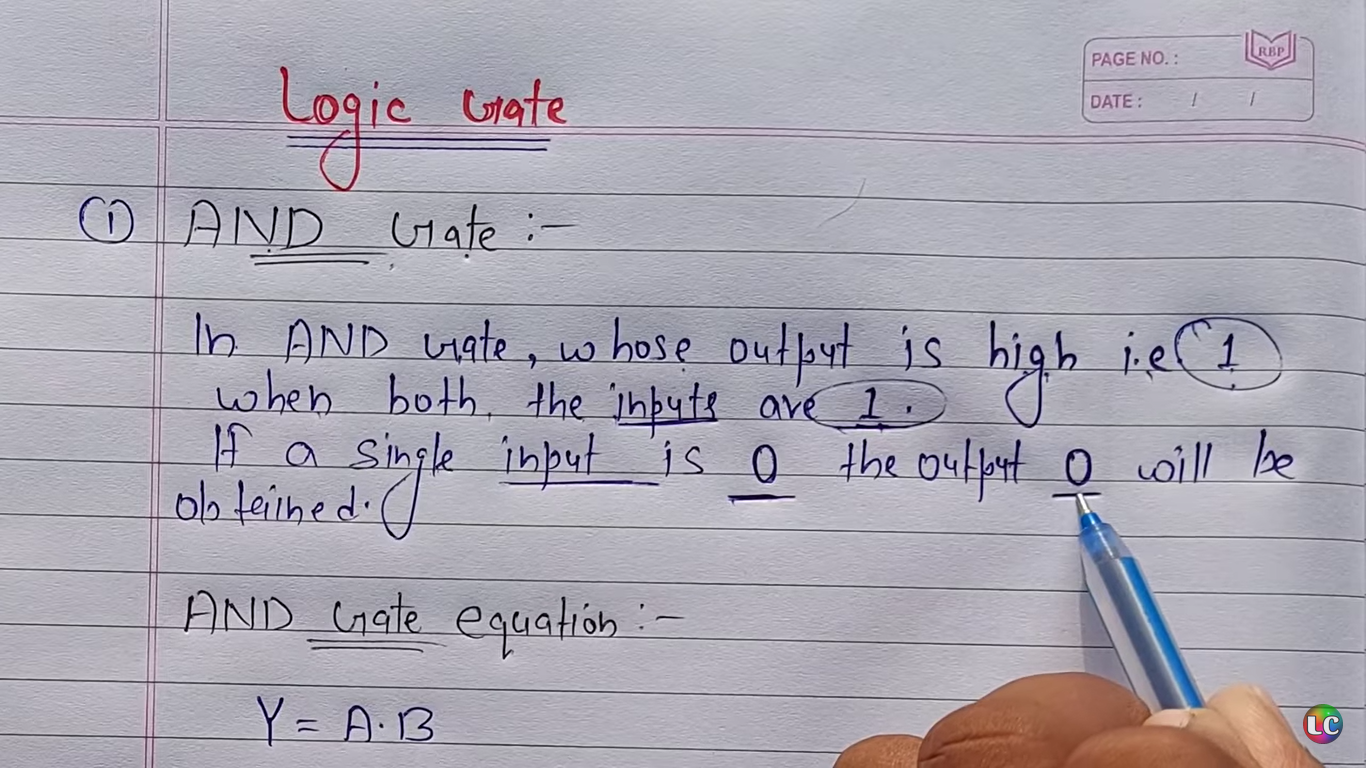 PAGE NO. :
RBP
DATE : / /
Logic Gate
① AND Gate :-
In AND Gate, whose output is high i.e 1
when both, the inputs are 1.
If a single input is 0 the output 0 will be
obteined.
AND Gate equation :-
Y = A.B
LC